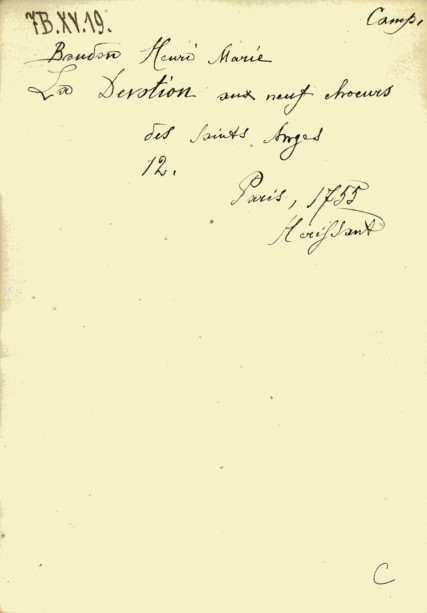 7B.XV.19.
Camp.
Boudon Henri Marie
La Devotion aux neuf choeurs
des Saints Anges
12.
Paris, 1755
Hérissant
C